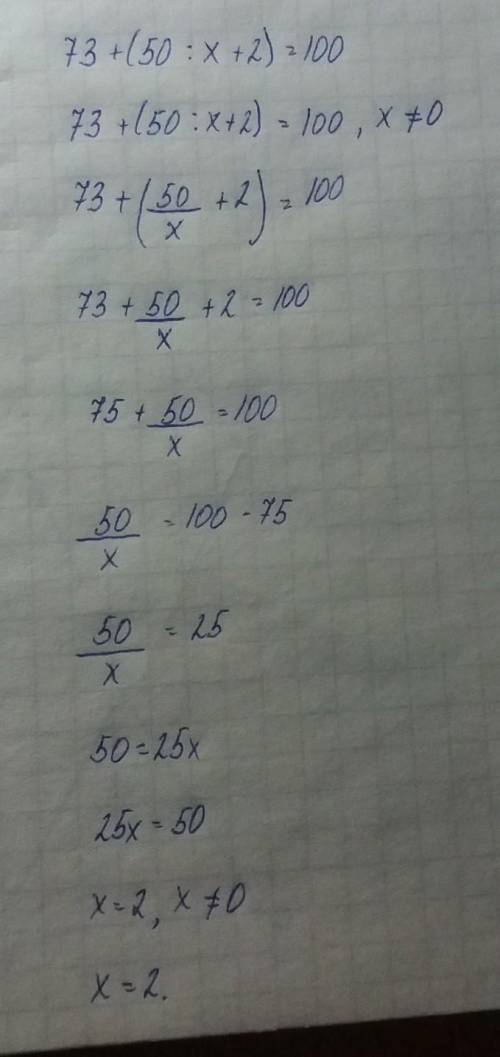 73 + (50 : x + 2) = 100
73 + (50 : x + 2) = 100, x ≠ 0
73 + (50/x + 2) = 100
73 + 50/x + 2 = 100
75 + 50/x = 100
50/x = 100 - 75
50/x = 25
50 = 25x
25x = 50
x = 2, x ≠ 0
x = 2.